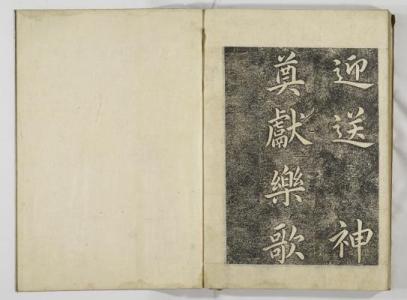 迎送神
奠獻樂歌